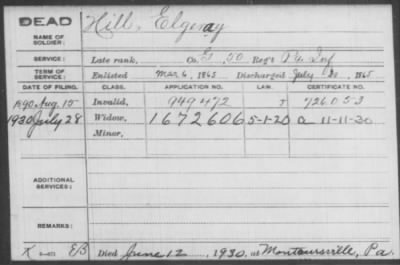 DEAD
NAME OF SOLDIER: Hill, Elgeray
SERVICE: Late rank, Co. G, 50 Reg't Pa. Inf
TERM OF SERVICE: Enlisted Mar. 6, 1865 Discharged July 30, 1865
DATE OF FILING. CLASS. APPLICATION NO. LAW. CERTIFICATE NO.
1890 Aug. 15 Invalid, 949472 J 726053
1930 July 28 Widow, 1672606 5-1-20 a 11-11-30
Minor,
ADDITIONAL SERVICES:
REMARKS:
K EB Died June 12, 1930, at Montoursville, Pa.